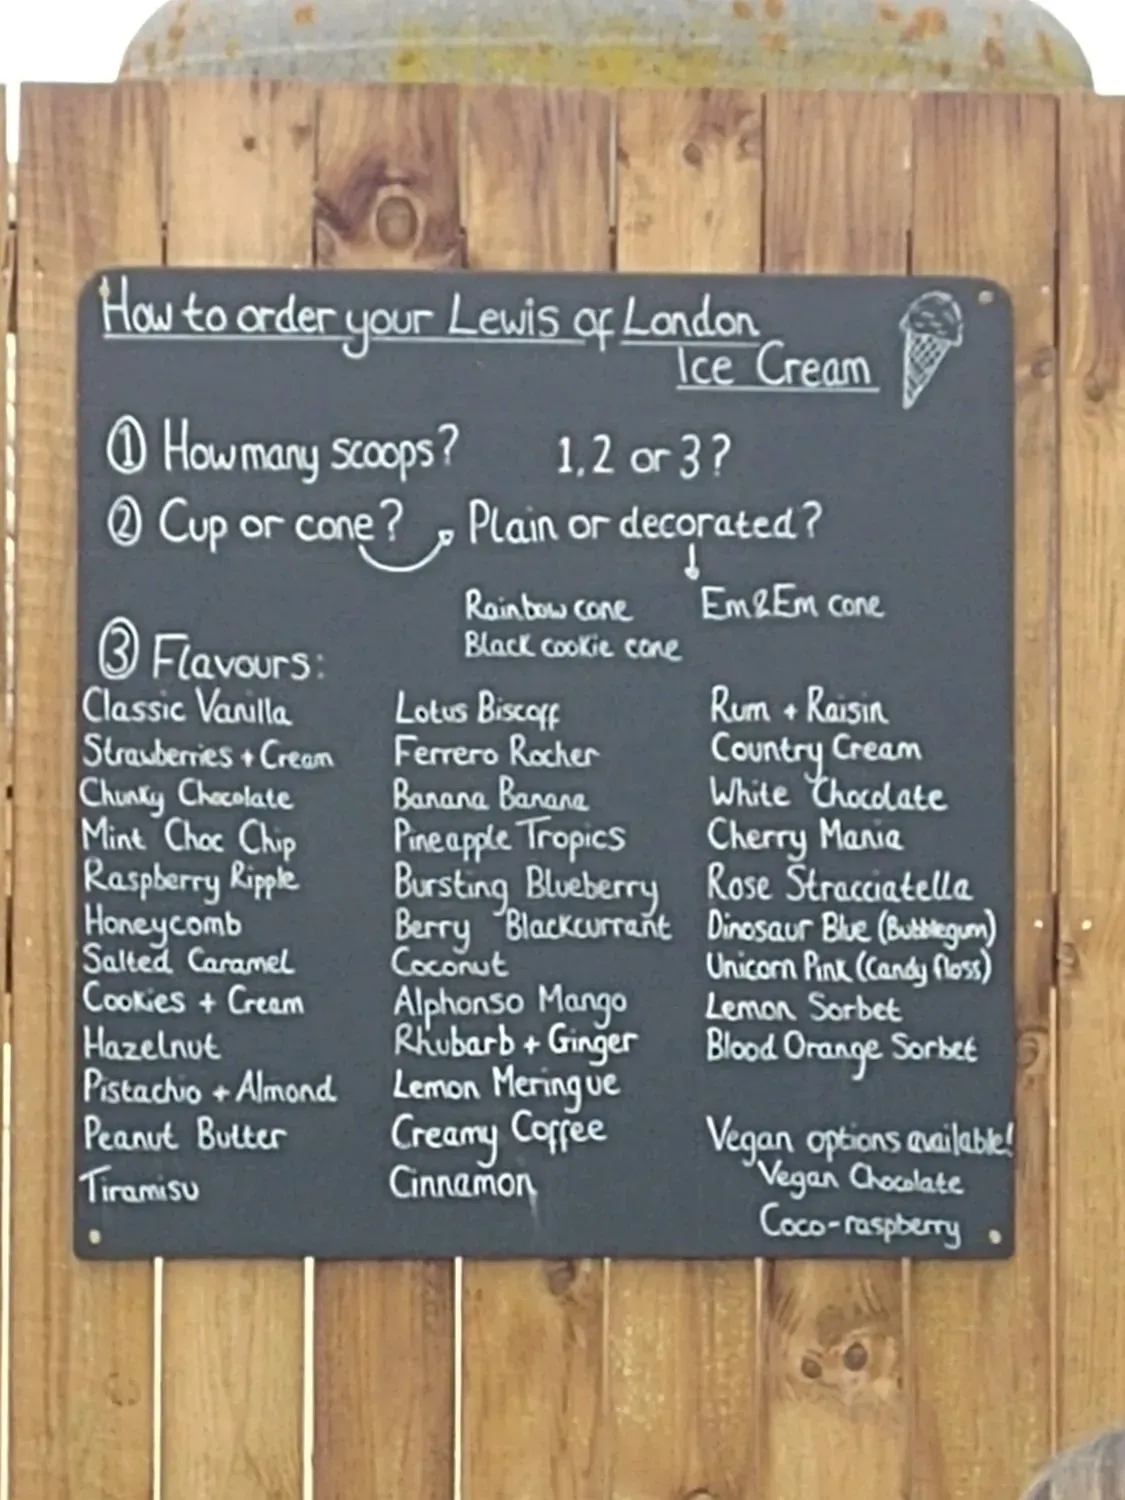 How to order your Lewis of London
Ice Cream
① How many scoops? 1, 2 or 3?
② Cup or cone? Plain or decorated?
Rainbow cone Em&Em cone
Black cookie cone
③ Flavours:
Classic Vanilla
Strawberries + Cream
Chunky Chocolate
Mint Choc Chip
Raspberry Ripple
Honeycomb
Salted Caramel
Cookies + Cream
Hazelnut
Pistachio + Almond
Peanut Butter
Tiramisu
Lotus Biscoff
Ferrero Rocher
Banana Banana
Pineapple Tropics
Bursting Blueberry
Berry Blackcurrant
Coconut
Alphonso Mango
Rhubarb + Ginger
Lemon Meringue
Creamy Coffee
Cinnamon
Rum + Raisin
Country Cream
White Chocolate
Cherry Mania
Rose Stracciatella
Dinosaur Blue (Bubblegum)
Unicorn Pink (Candy floss)
Lemon Sorbet
Blood Orange Sorbet
Vegan options available!
Vegan Chocolate
Coco-raspberry